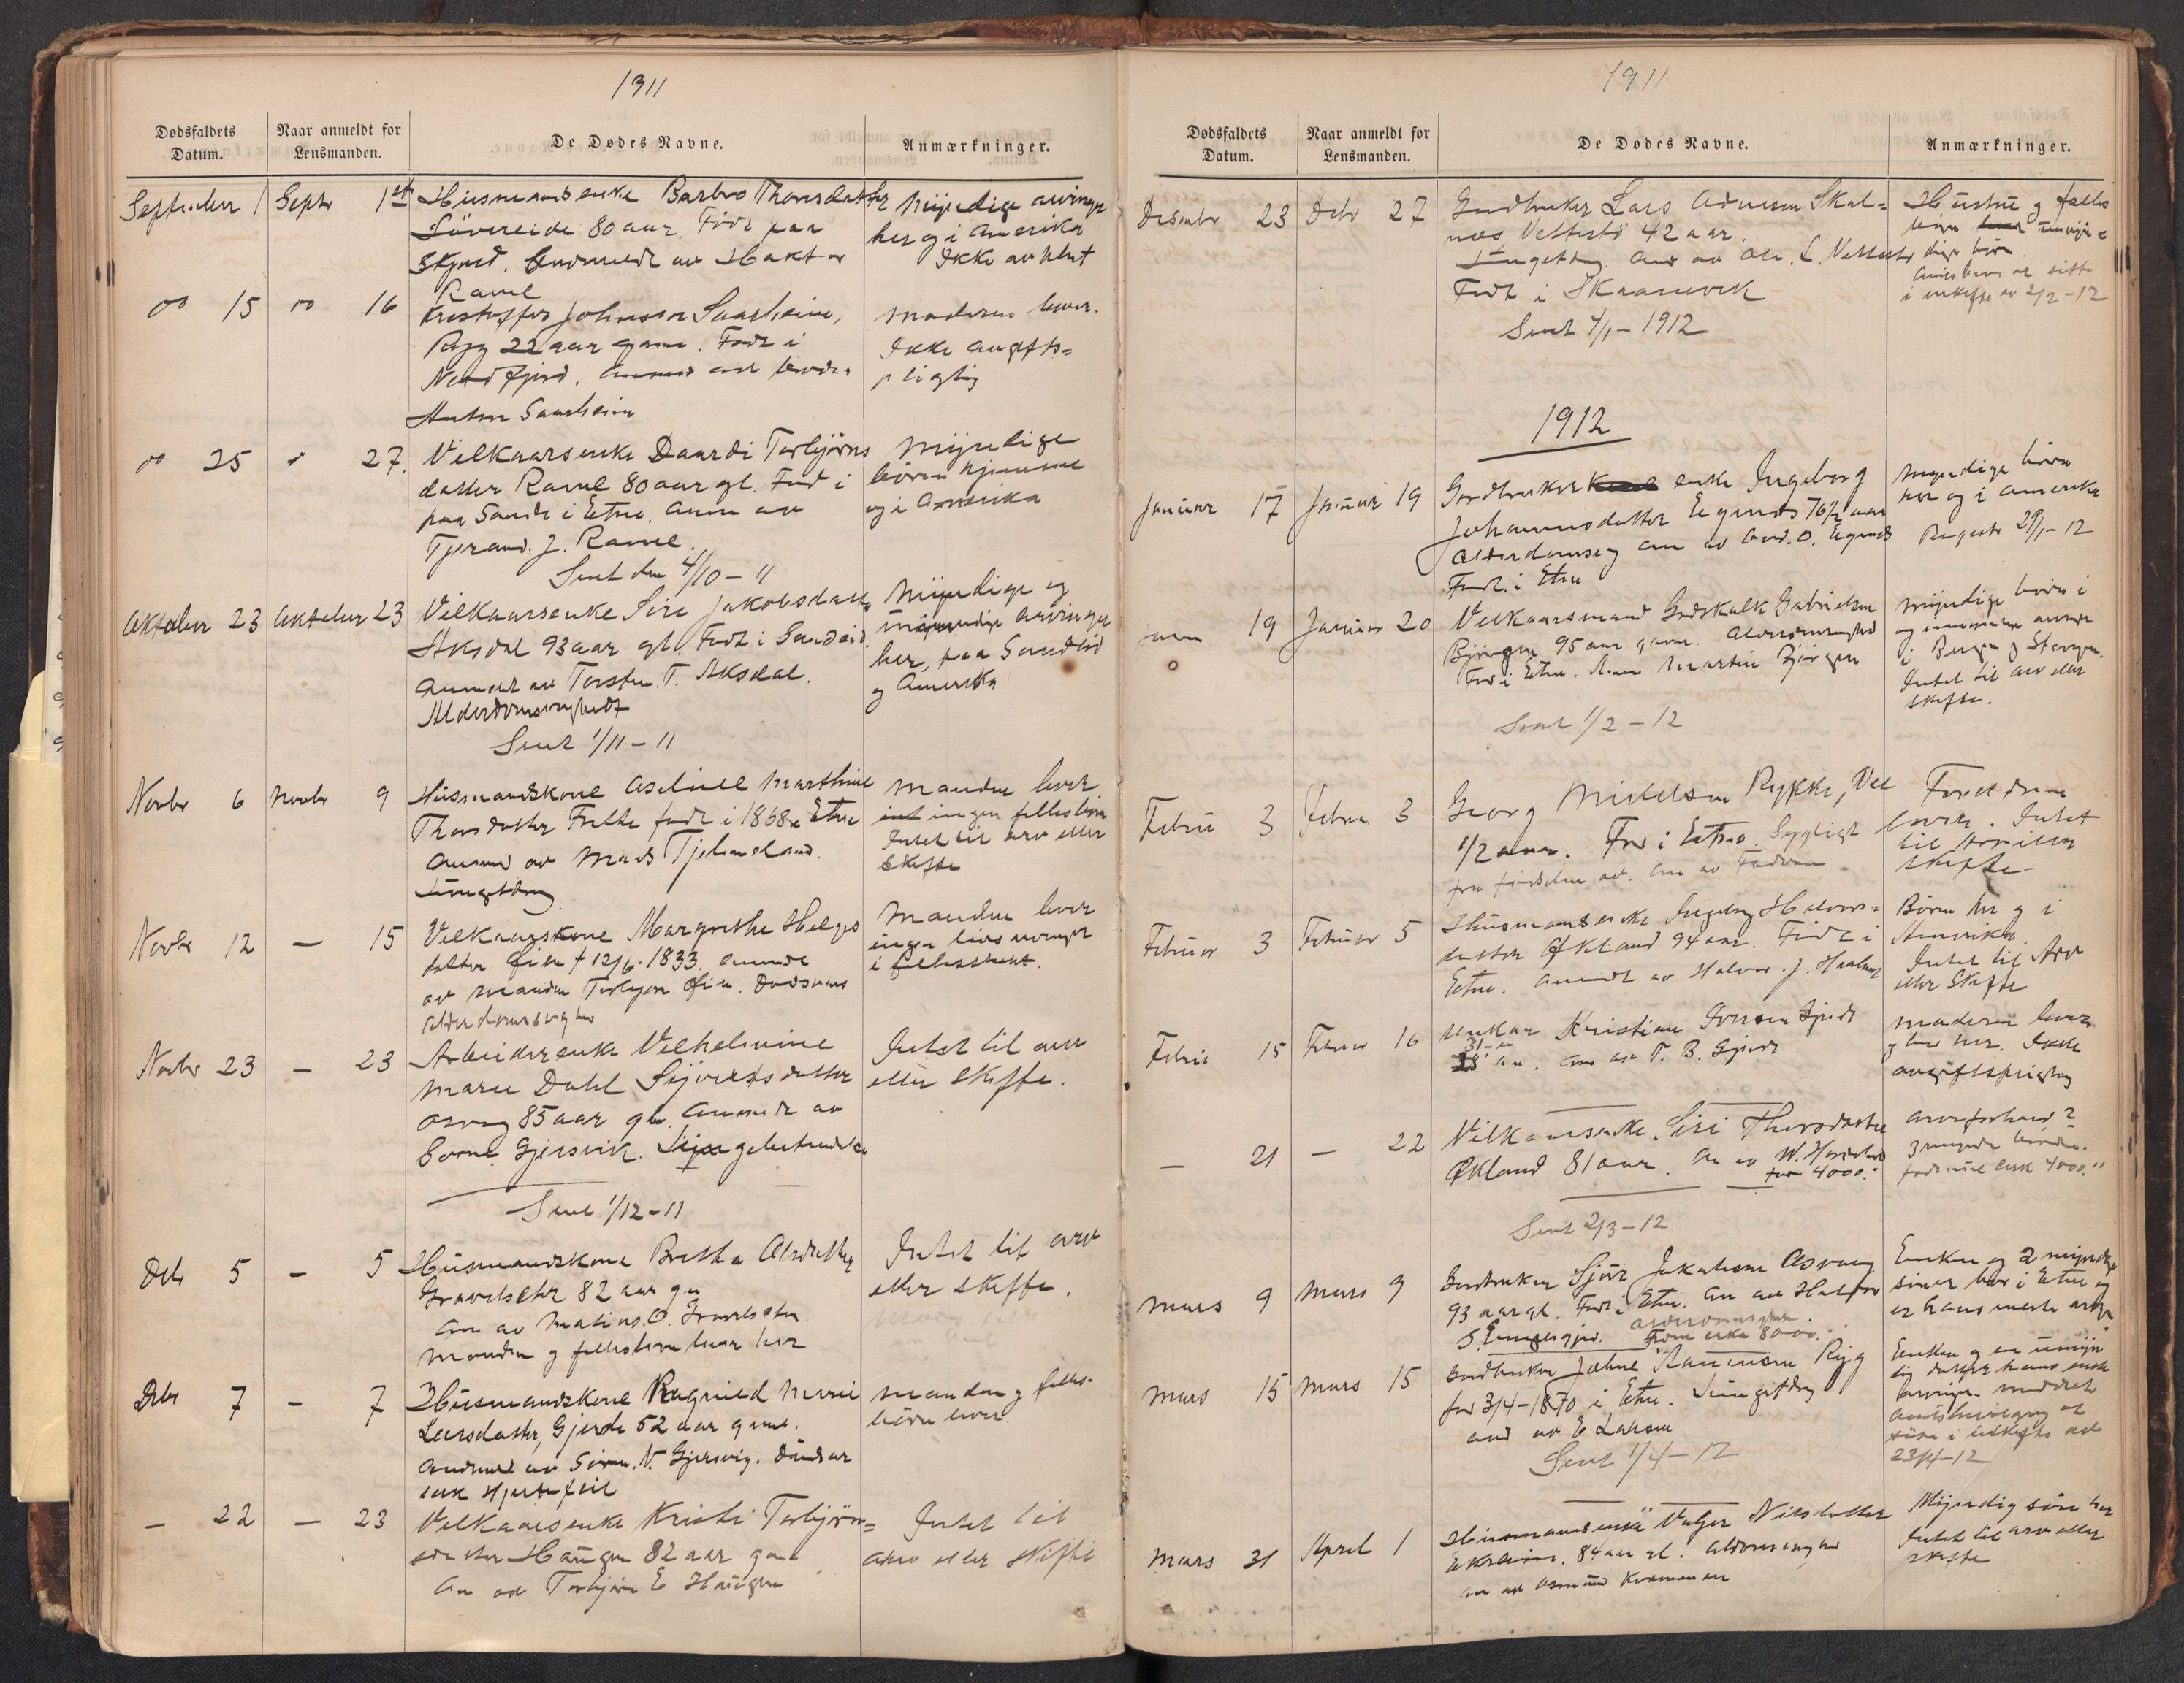 1911
Dødsfaldets Datum.
Naar anmeldt for Lensmanden.
De Dødes Navne.
Anmærkninger.
September 1 Septr 1st Husmandsenke Barbro Thorsdatter
Støvereide 80 aar. Født paa
Skjold. Anmeldt av
Ravne
Myndige arvinger
her og i Amerika
Ikke
" 15 " 16 Kristoffer Johnsson Saarheim,
Rygg 22 aar gam. Født i
Nordfjord. av broder
Anton Saarheim
Moderen lever.
Ikke avgifts=
pligtig
" 25 " 27. Vilkaarsenke Daardi Torbjørns
datter Ravne 80 aar gl. Født i
paa Sande i Etne. Anm av
Tjerand. J. Ravne.
Sent den 4/10 - 11
Myndige
børn hjemme
og i Amerika
Oktober 23 Oktober 23 Vilkaarsenke Siri Jakobsdatter
Aksdal 93 aar gl. Født i Sandeid.
Anmeldt av Torsten T. Aksdal.
Alderdomssvaghedt
Sent 1/11 - 11
Myndige og
umyndige arvinger
her, paa Sandeid
og Amerika
Novbr 6 Novbr 9 Husmandskone Marthine
Thorsdatter født i 1868 i Etne
Anmd av Mads Tjelmeland.
Manden lever
ingen fellesbørn
Intet til arv eller
Skifte
Novbr 12 — 15 Vilkaarskone Margrethe Helges
datter Øien f 12/6 1833. Anmeldt
av manden Torbjørn Øien. Dødsaars
alderdomssvaghed
Manden lever
ingen livsarvinger
i
Novbr 23 — 23 Arbeiderenke Vilhelmine
Marie Dahl Sjovertsdatter
Osvag 85 aar gl. Anmeldt av
Gjersvik. Lungebetendelse
Sent 1/12 - 11
Intet til arv
eller Skifte.
Debr 5 — 5 Husmandskone Bretha Olsdatter
Gravelseter 82 aar gl
Anm av Matias. O. Gravelseter
Manden og fellesbørn lever her
Intet til arv
eller skifte.
Debr 7 — 7 Husmandskone Ragnild Marie
Larsdatter, Gjerde 52 aar gam.
Anmeldt av Søren. N. Gjersvig. Dødsaar
sak Hjertefeil
Manden og felles-
børn lever
— 22 — 23 Vilkaarsenke Kristi Torbjørns=
datter Haugen 82 aar gam
An av Torbjørn E Haugen
Intet til
arv eller skifte
1911
Dødsfaldets Datum.
Naar anmeldt for Lensmanden.
De Dødes Navne.
Anmærkninger.
Desember 23 Debr 27 Gardbruker Lars Skal=
nes Vettestø 42 aar.
Tungetdrag Anm av Ole. L. Vettestø
Født i Skaanevik
Sent 4/1 - 1912
Hustru og felles
børn umyn=
dige børn
at sitte
i uskifte av 2/2 - 12
1912
Januar 17 Januar 19 Gardbruker enke Ingeborg
Johannesdatter Egenes 76 1/2 aar
Alderdomssvag Anm av And. O. Egenes
Født i Etne
Myndige børn
her og i Amerika
29/1 - 12
Januar 19 Januar 20 Vilkaarsmand Godskalk Gabrielsen
Bjørgen 95 aar gam. Alderdomssvaghed
Født i Etne. Anm Martin Bjørgen
Sent 1/2 - 12
Myndige børn i
og
i Bergen og Stavanger.
Intet til arv eller
skifte.
Februar 3 Februar 3 Georg Mikelsen Rykke, Vik
1/2 aar. Født i Etne. Sygligt
fra fødselen av. An av Faderen
Foreldrene
lever. Intet
til Arv eller
skifte-
Februar 3 Februar 5 Husmandsenke Ingeborg Halvors=
datter Økland 94 aar. Født i
Etne. Anmeldt av Halvor. J. Haaland
Børn her og i
Amerika
Intet til Arv
eller Skifte
Februar 15 Februar 16 Unkar Kristian Iversen Gjerde
31 aar. Anm av T. B. Gjerde
Moderen lever
og bor her. Ikke
avgiftspligtig
— 21 — 22 Vilkaarsenke Siri Thorsdatter
Økland 81 aar. An av W.
4000.-
Arveforhold?
3 myndige
cirk 4000."
Sent 2/3 - 12
Mars 9 Mars 9 Gardbruker Sjur Jakobsen Osvaag
93 aar gl. Født i Etne. An av Halvor
S. alderdomssvaghed.
cirka 8000.
Enken og 2 myndige
sønner bor i Etne og
er hans eneste arvinger
Mars 15 Mars 15 Gardbruker Johne Rasmussen Ryg
født 3/4 - 1870 i Etne. Tungetdrag
And av E Larsen
Sent 1/4 - 12
Enken og en umyn
dig datter hans eneste
arvinger. meddelt
Amtsbevilgning at
sitte i uskifte av
23/4 - 12
Mars 31 April 1 Husmandsenke Valgjer Nilsdatter
84 aar gl. Alderdomssvaghed
An av Osmund Kvammen
Myndig søn her
Intet til arv eller
skifte